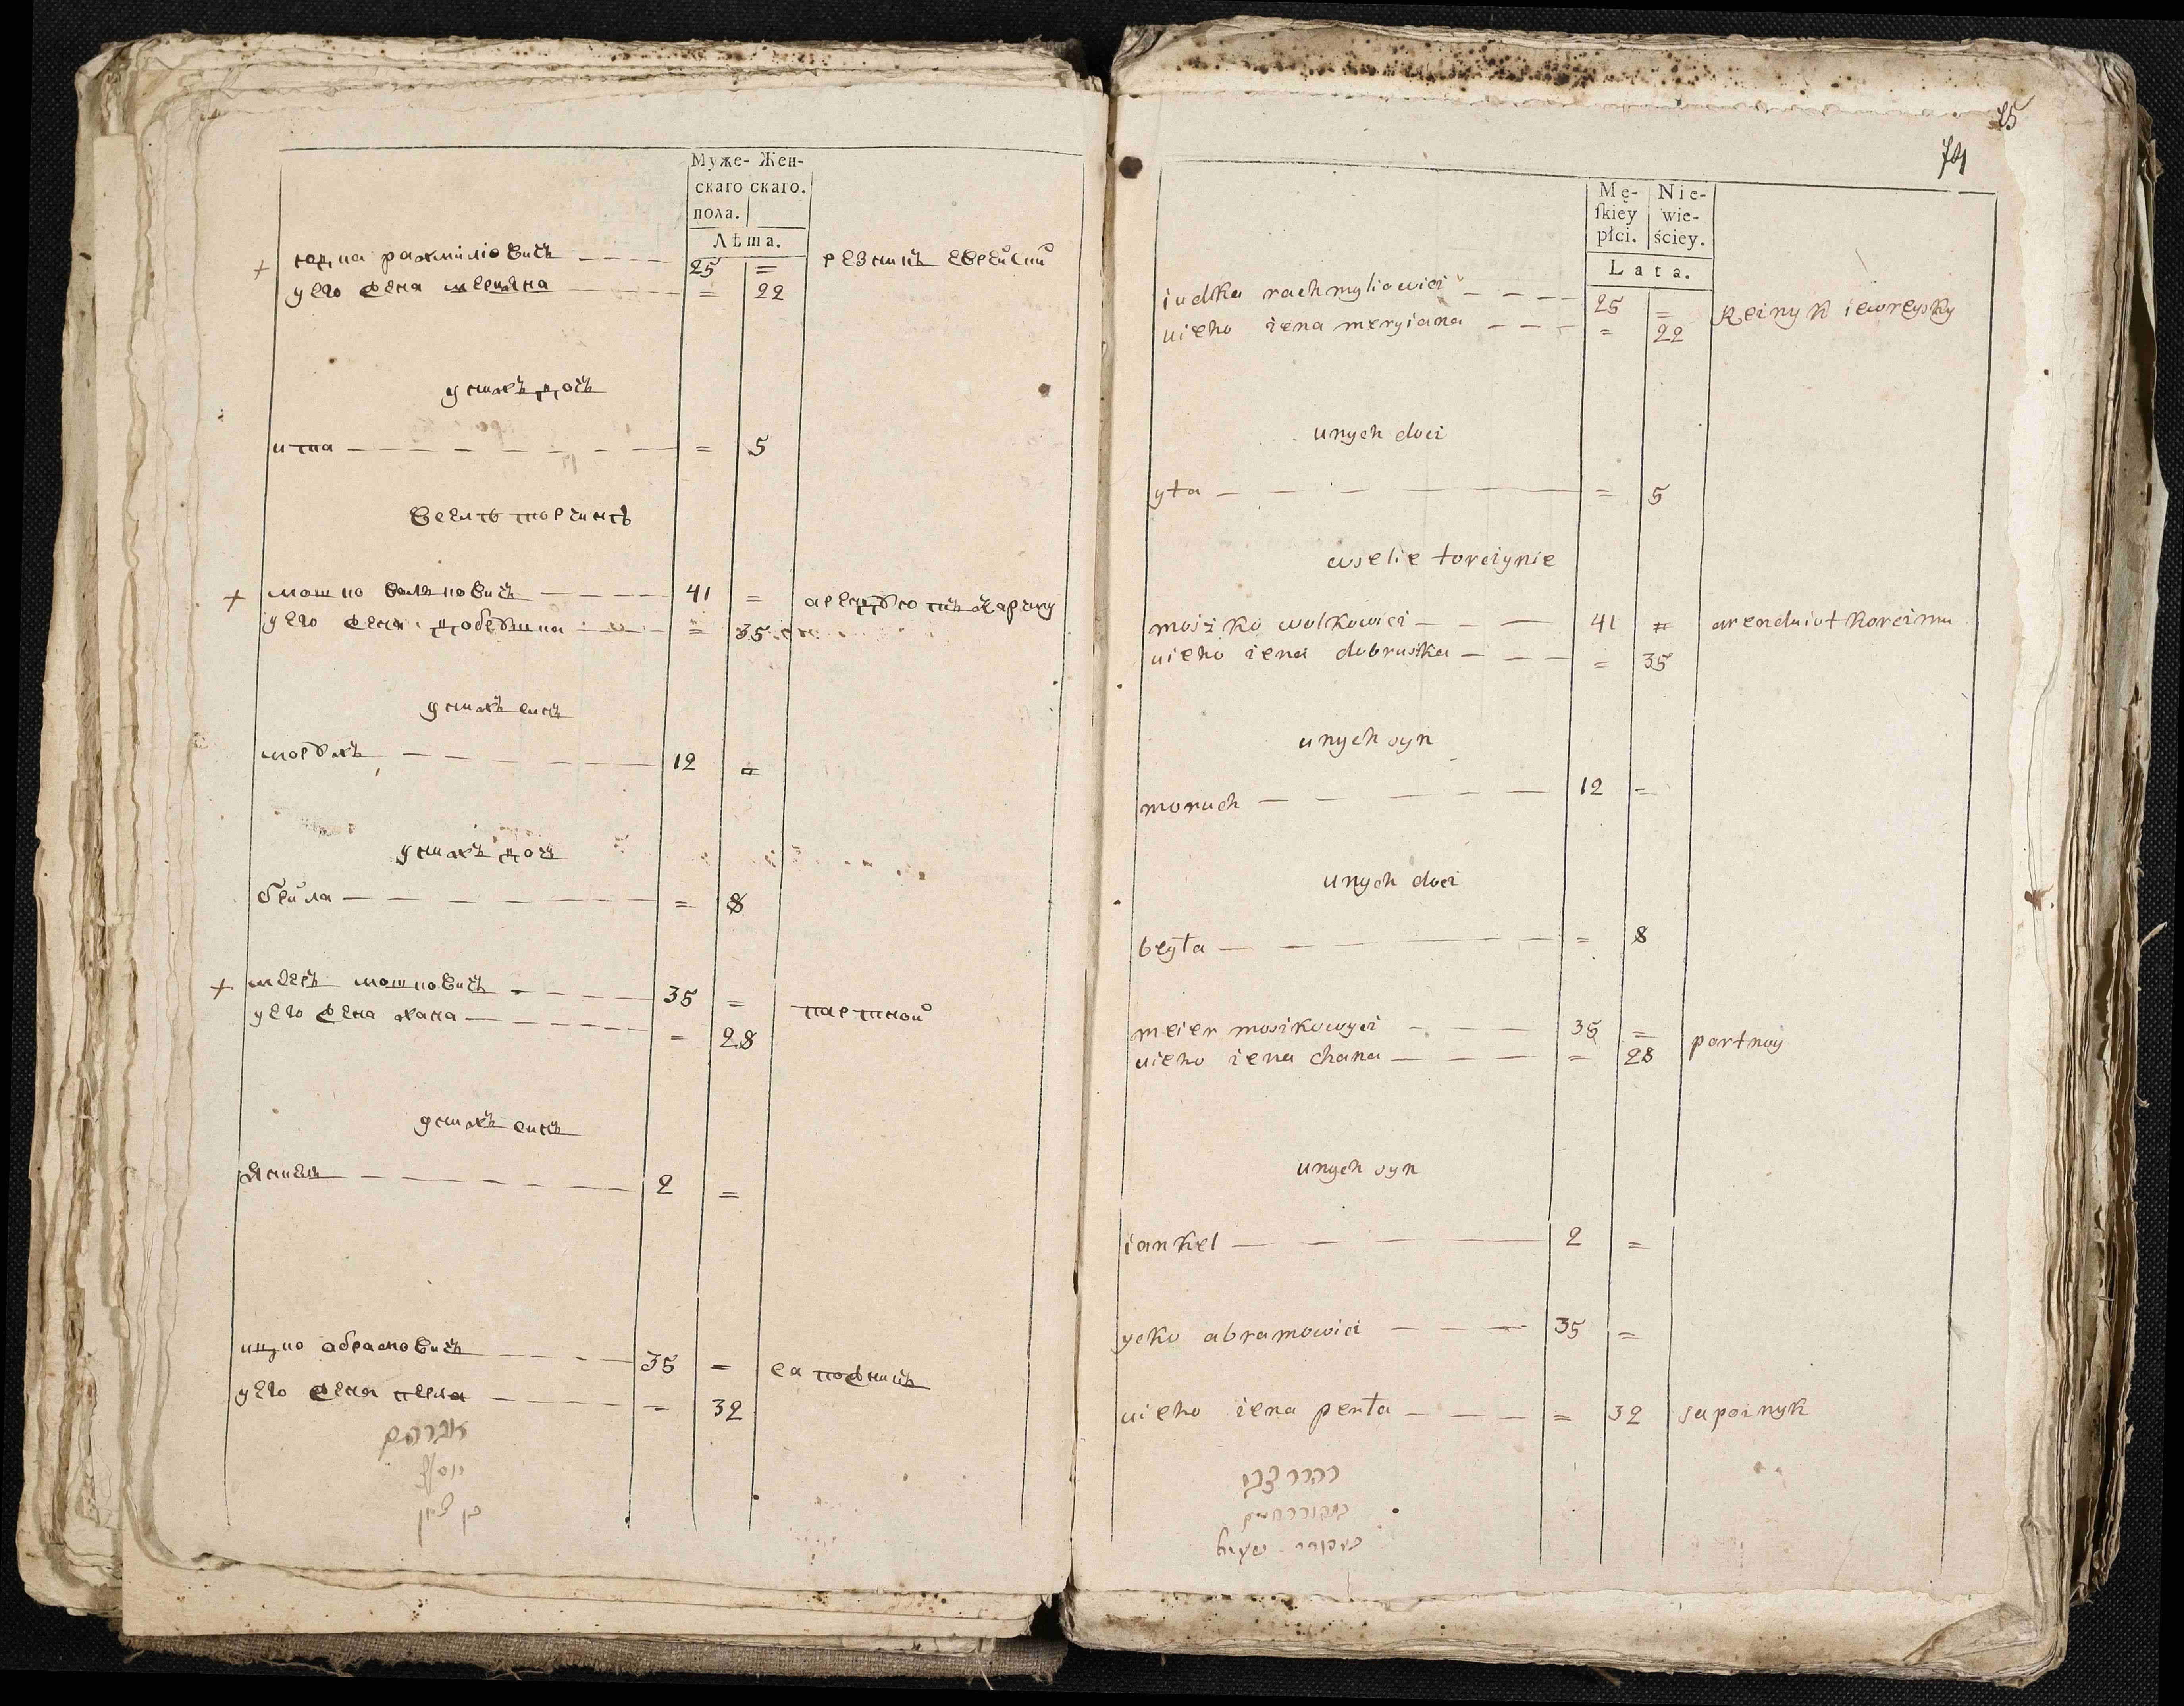 Муже- Жен-
скаго скаго.
пола.
Лѣта.
юдка рахмиліовичъ 25 = резникъ еврейкий
у его жена мерияна = 22
у нихъ дочъ
итка = 5
в селѣ торчинѣ
+ мошко волковичъ 41 = арендуютъ карчму
у его жена добрушка = 35
у нихъ синъ
морухъ 12 =
у нихъ дочъ
бейла = 8
+ мееръ мошковичъ 35 = партной
у его жена хана = 28
у нихъ синъ
Янкель 2 =
ицко абрамовичъ 35 = сапожникъ
у его жена перла = 32
אברהם
יוסף
בן ציון
75
74
Mę- Nie-
ſkiey wie-
płci. ściey.
Lata.
iudka rachmyliowici 25 = Reinyk iewreysky
uieho iena meryiana = 22
unych doci
yta = 5
wselie torciynie
moszko wolkowici 41 = arenduiut korcimu
uieho iena dobruszka = 35
unych syn
moruch 12 =
unych doci
beyła = 8
meier moszkowyci 35 = portnoy
uieho iena chana = 28
unych syn
iankel 2 =
ycko abramowici 35 =
uieho iena perła = 32 sapoinyk